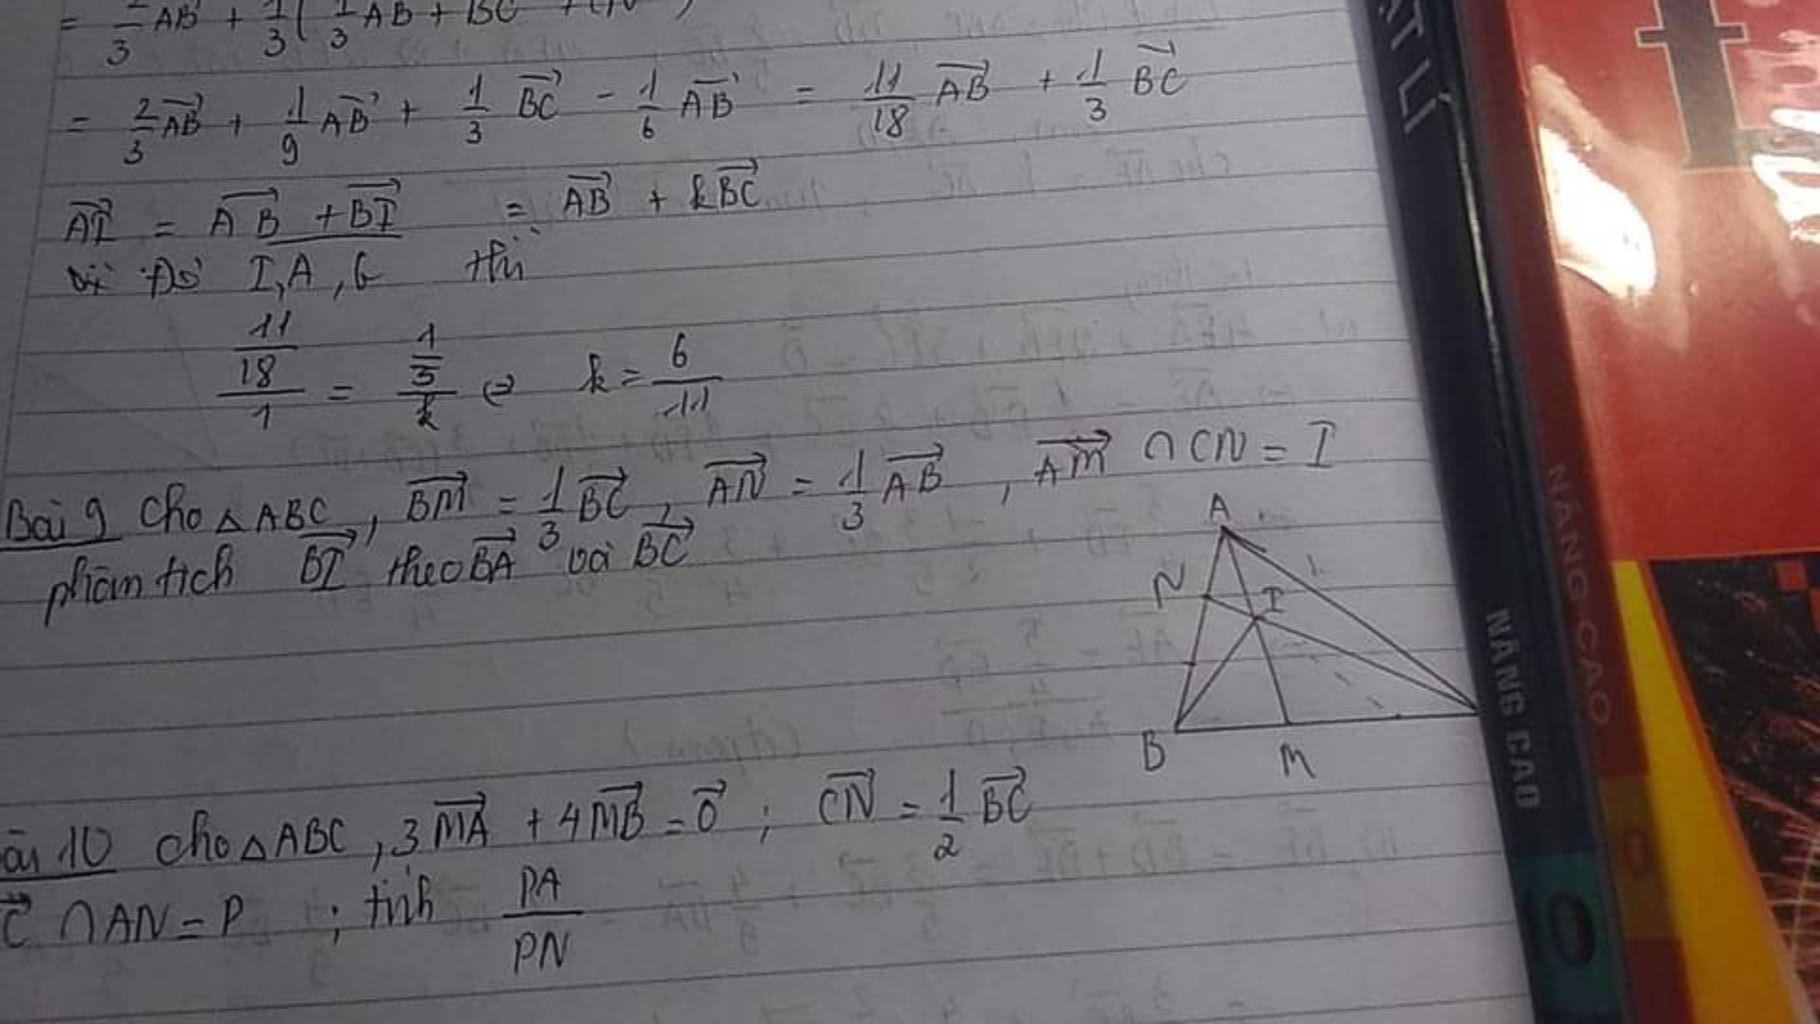 = 2/3 AB + 1/3 ( 1/3 AB + BC
= 2/3 AB + 1/9 AB + 1/3 BC - 1/6 AB = 11/18 AB + 1/3 BC
AI = AB + BI = AB + kBC
I, A, G thì
11/18 / 1 = 1/3 / k k = 6/11
Bài 9 cho △ABC, BM = 1/3 BC, AN = 1/3 AB, AM ∩ CN = I
phâm tích BI theo BA và BC
A
N
I
B
M
10 cho △ABC, 3MA + 4MB = 0 ; CN = 1/2 BC
C ∩ AN = P ; tính PA/PN
ẬT LÍ
NÂNG CAO
NÂNG CAO
10